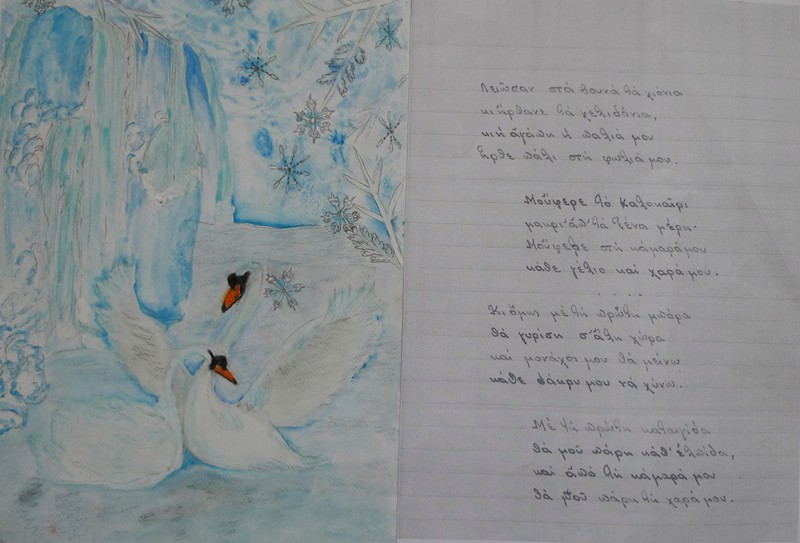 Λειῶσαν στά βουνά τά χιόνια
κι ἤρθανε τά χελιδόνια,
κι ἡ ἀγάπη ἡ παλιά μου
ἦρθε πάλι στή φωλιά μου.
Μοὔφερε τό καλοκαῖρι
μακρι' ἀπ' τά ξένα μέρη.
Μοὔφερε στή κάμαρά μου
κάθε γέλιο καί χαρά μου.
. . . . .
Κι ὅμως μέ τή πρώτη μπόρα
θά γυρίση σ' ἄλλη χώρα
καί μονάχος μου θά μείνω
κάθε δάκρυ μου νά χύνω.
Μέ τή πρώτη καταιγίδα
θά μοῦ πάρη κάθ' ἐλπίδα,
καί ἀπό τή κάμαρά μου
θά μοῦ πάρη τή χαρά μου.